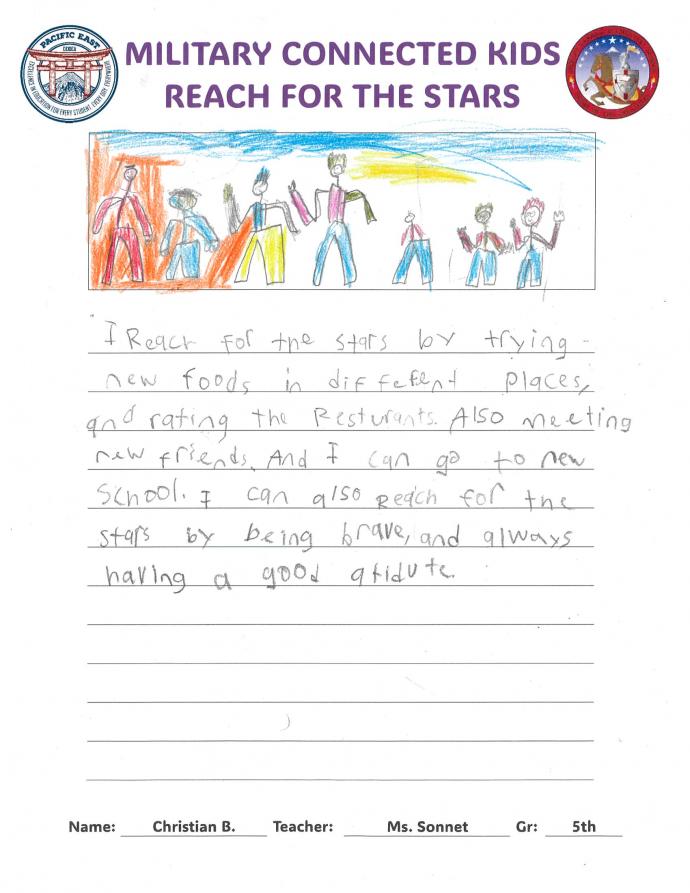 PACIFIC EAST
DODEA
EXCELLENCE IN EDUCATION FOR EVERY STUDENT, EVERY DAY, EVERYWHERE
MILITARY CONNECTED KIDS
REACH FOR THE STARS
I Reach for the stars by trying
new foods in different places,
and rating the Resturants. Also meeting
new friends. And I can go to new
School. I can also Reach for the
stars by being brave, and always
having a good atidute.
Name: Christian B. Teacher: Ms. Sonnet Gr: 5th